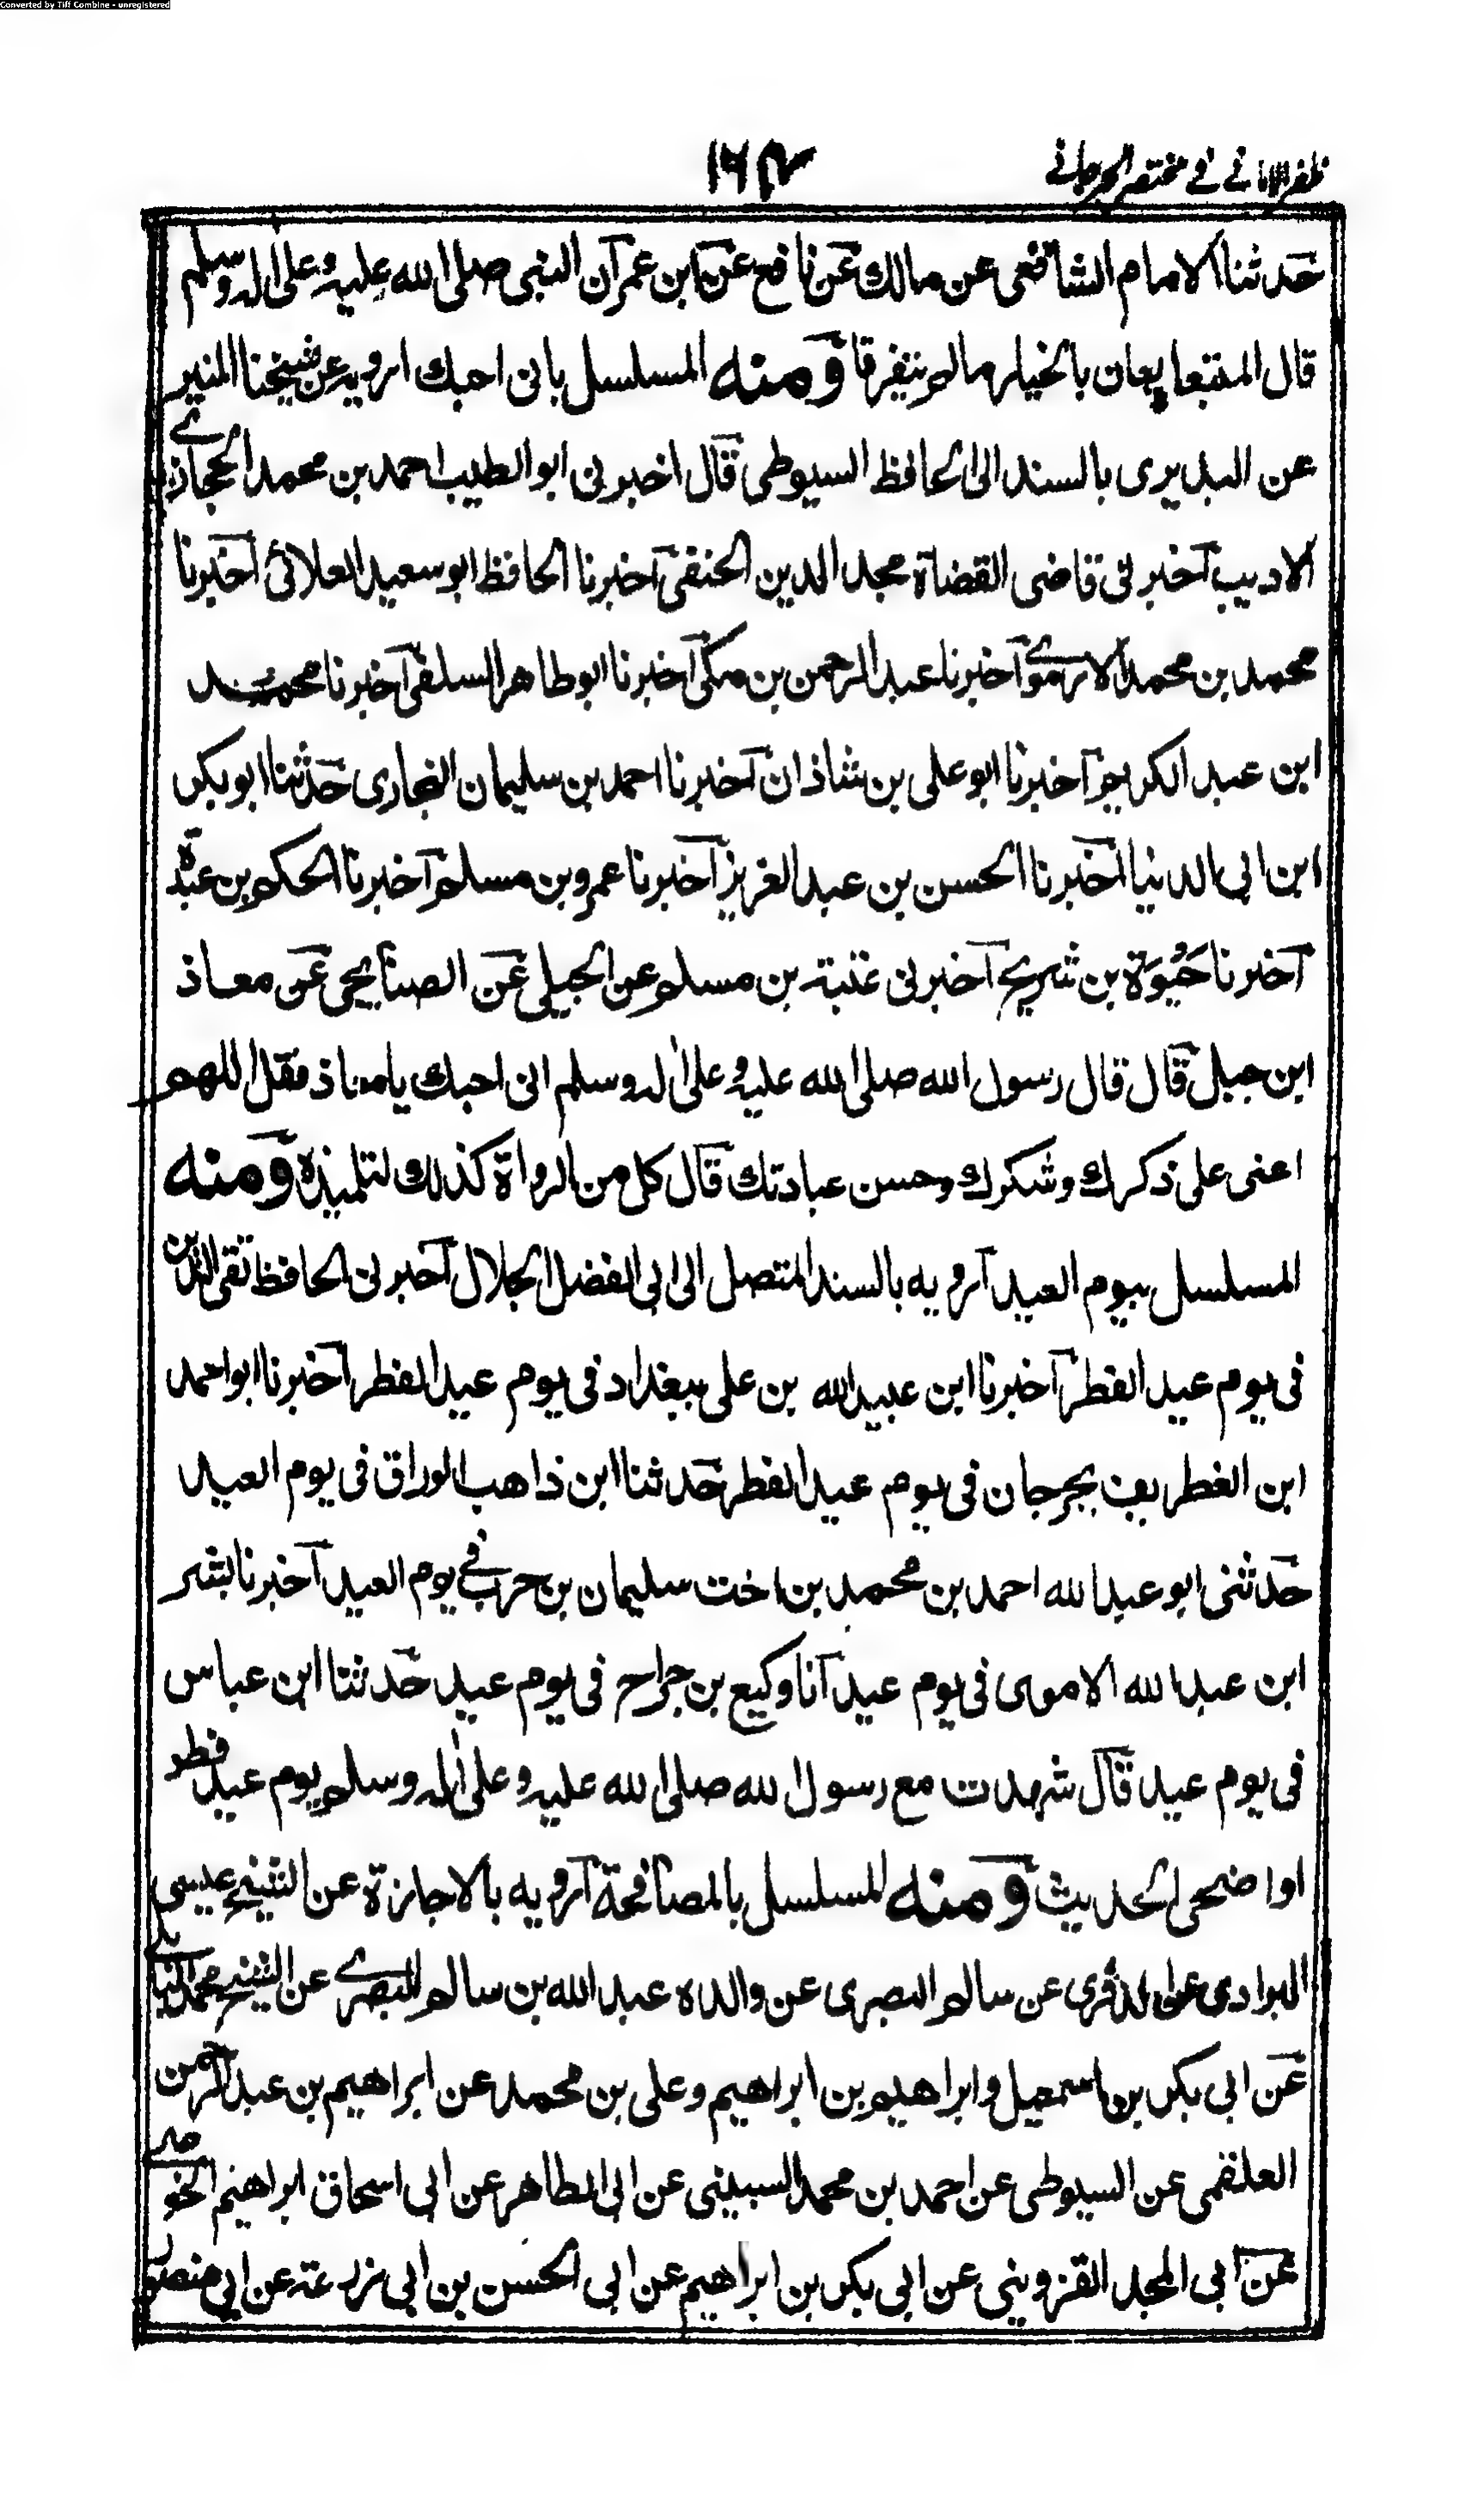 Converted by Tiff Combine - unregistered
ظفر الامانی فی مختصر الجرجانی
١٦٢
حدثنا الامام الشافعی عن مالك عن نافع عن ابن عمر ان النبی صلی الله علیه وعلی اله وسلم
قال المتبعايعان بالخيار مالم يتفرقا ومنه المسلسل بانی احبك ارويه عن شيخنا المنير
عن البديری بالسند الی الحافظ السيوطی قال اخبرنی ابو الطيب احمد بن محمد الحجازے
الاديب اخبرنی قاضی القضاة مجد الدين الحنفی اخبرنا الحافظ ابو سعيد العلائی اخبرنا
محمد بن محمد الارموے اخبرنا عبد الرحمن بن مكی اخبرنا ابو طاهر السلفی اخبرنا محمد
ابن عبد الكريم اخبرنا ابو علی بن شاذان اخبرنا احمد بن سليمان النجاری حدثنا ابو بكر
ابن ابی الدنيا اخبرنا الحسن بن عبد العزيز اخبرنا عمرو بن مسلم اخبرنا الحكم بن عبدة
اخبرنا حيوة بن شريح اخبرنی عتبة بن مسلم عن الجبلی عن الصنابحی عن معاذ
ابن جبل قال قال رسول الله صلی الله عليه وعلی اله وسلم انی احبك يا معاذ فقل اللهم
اعنی علی ذكرك وشكرك وحسن عبادتك قال كل من الرواة كذلك لتلميذه ومنه
المسلسل بيوم العيد ارويه بالسند المتصل الی ابی الفضل الجلال اخبرنی الحافظ تقی الدين
فی يوم عيد الفطر اخبرنا ابن عبيد الله بن علی ببغداد فی يوم عيد الفطر اخبرنا ابو احمد
ابن الغطريف بجرجان فی يوم عيد الفطر حدثنا ابن ذاهب الوراق فی يوم العيد
حدثنی ابو عبد الله احمد بن محمد بن اخت سليمان بن حرب فی يوم العيد اخبرنا بشر
ابن عبد الله الاموی فی يوم عيد انا وكيع بن جراح فی يوم عيد حدثنا ابن عباس
فی يوم عيد قال شهدت مع رسول الله صلی الله عليه وعلی اله وسلم يوم عيد فطر
او اضحی الحديث ومنه المسلسل بالمصافحة ارويه بالاجازة عن الشيخ عيسی
البوادی عن سالم البصری عن والده عبد الله بن سالم البصرے عن الشيخ محمد
عن ابی بكر بن اسمعيل وابراهيم بن ابراهيم وعلی بن محمد عن ابراهيم بن عبد الرحمن
العلقمی عن السيوطی عن احمد بن محمد السبينی عن ابی الطاهر عن ابی اسحاق ابراهيم
عن ابی المجد القزوينی عن ابی بكر بن ابراهيم عن ابی الحسن بن ابی زرعة عن ابی منصور